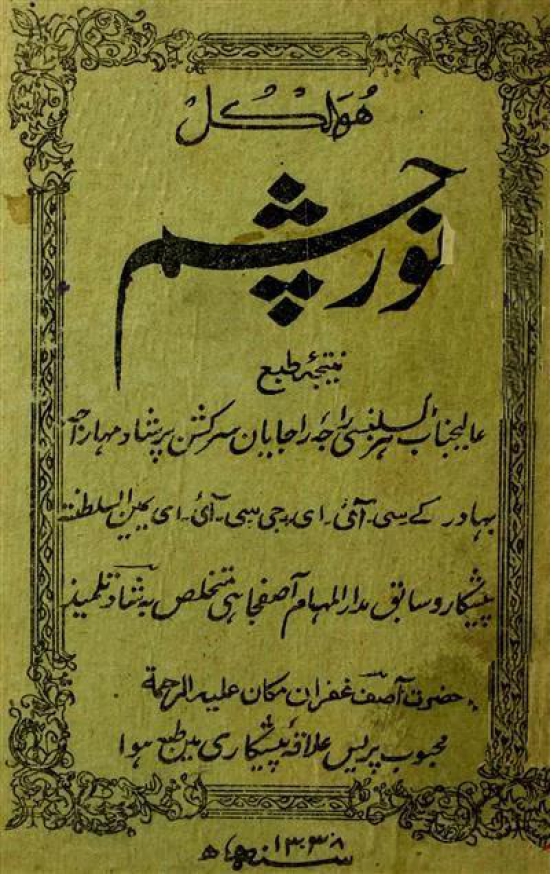 ھوالکل
نور چشم
نتیجۂ طبع
عالیجناب ہز اکسلنسی راجۂ راجایان سر کشن پرشاد مہاراجہ
بہادر کے۔سی۔آئی۔ای۔جی۔سی۔آئی۔ای یمین السلطنۃ
پیشکار و سابق مدارالمہام آصفجاہی متخلص بہ شاد تلمیذ
حضرت آصف غفران مکان علیہ الرحمۃ
محبوب پریس علاقۂ پیشکاری مین طبع ہوا
سنہ ۱۳۳۸ ھ